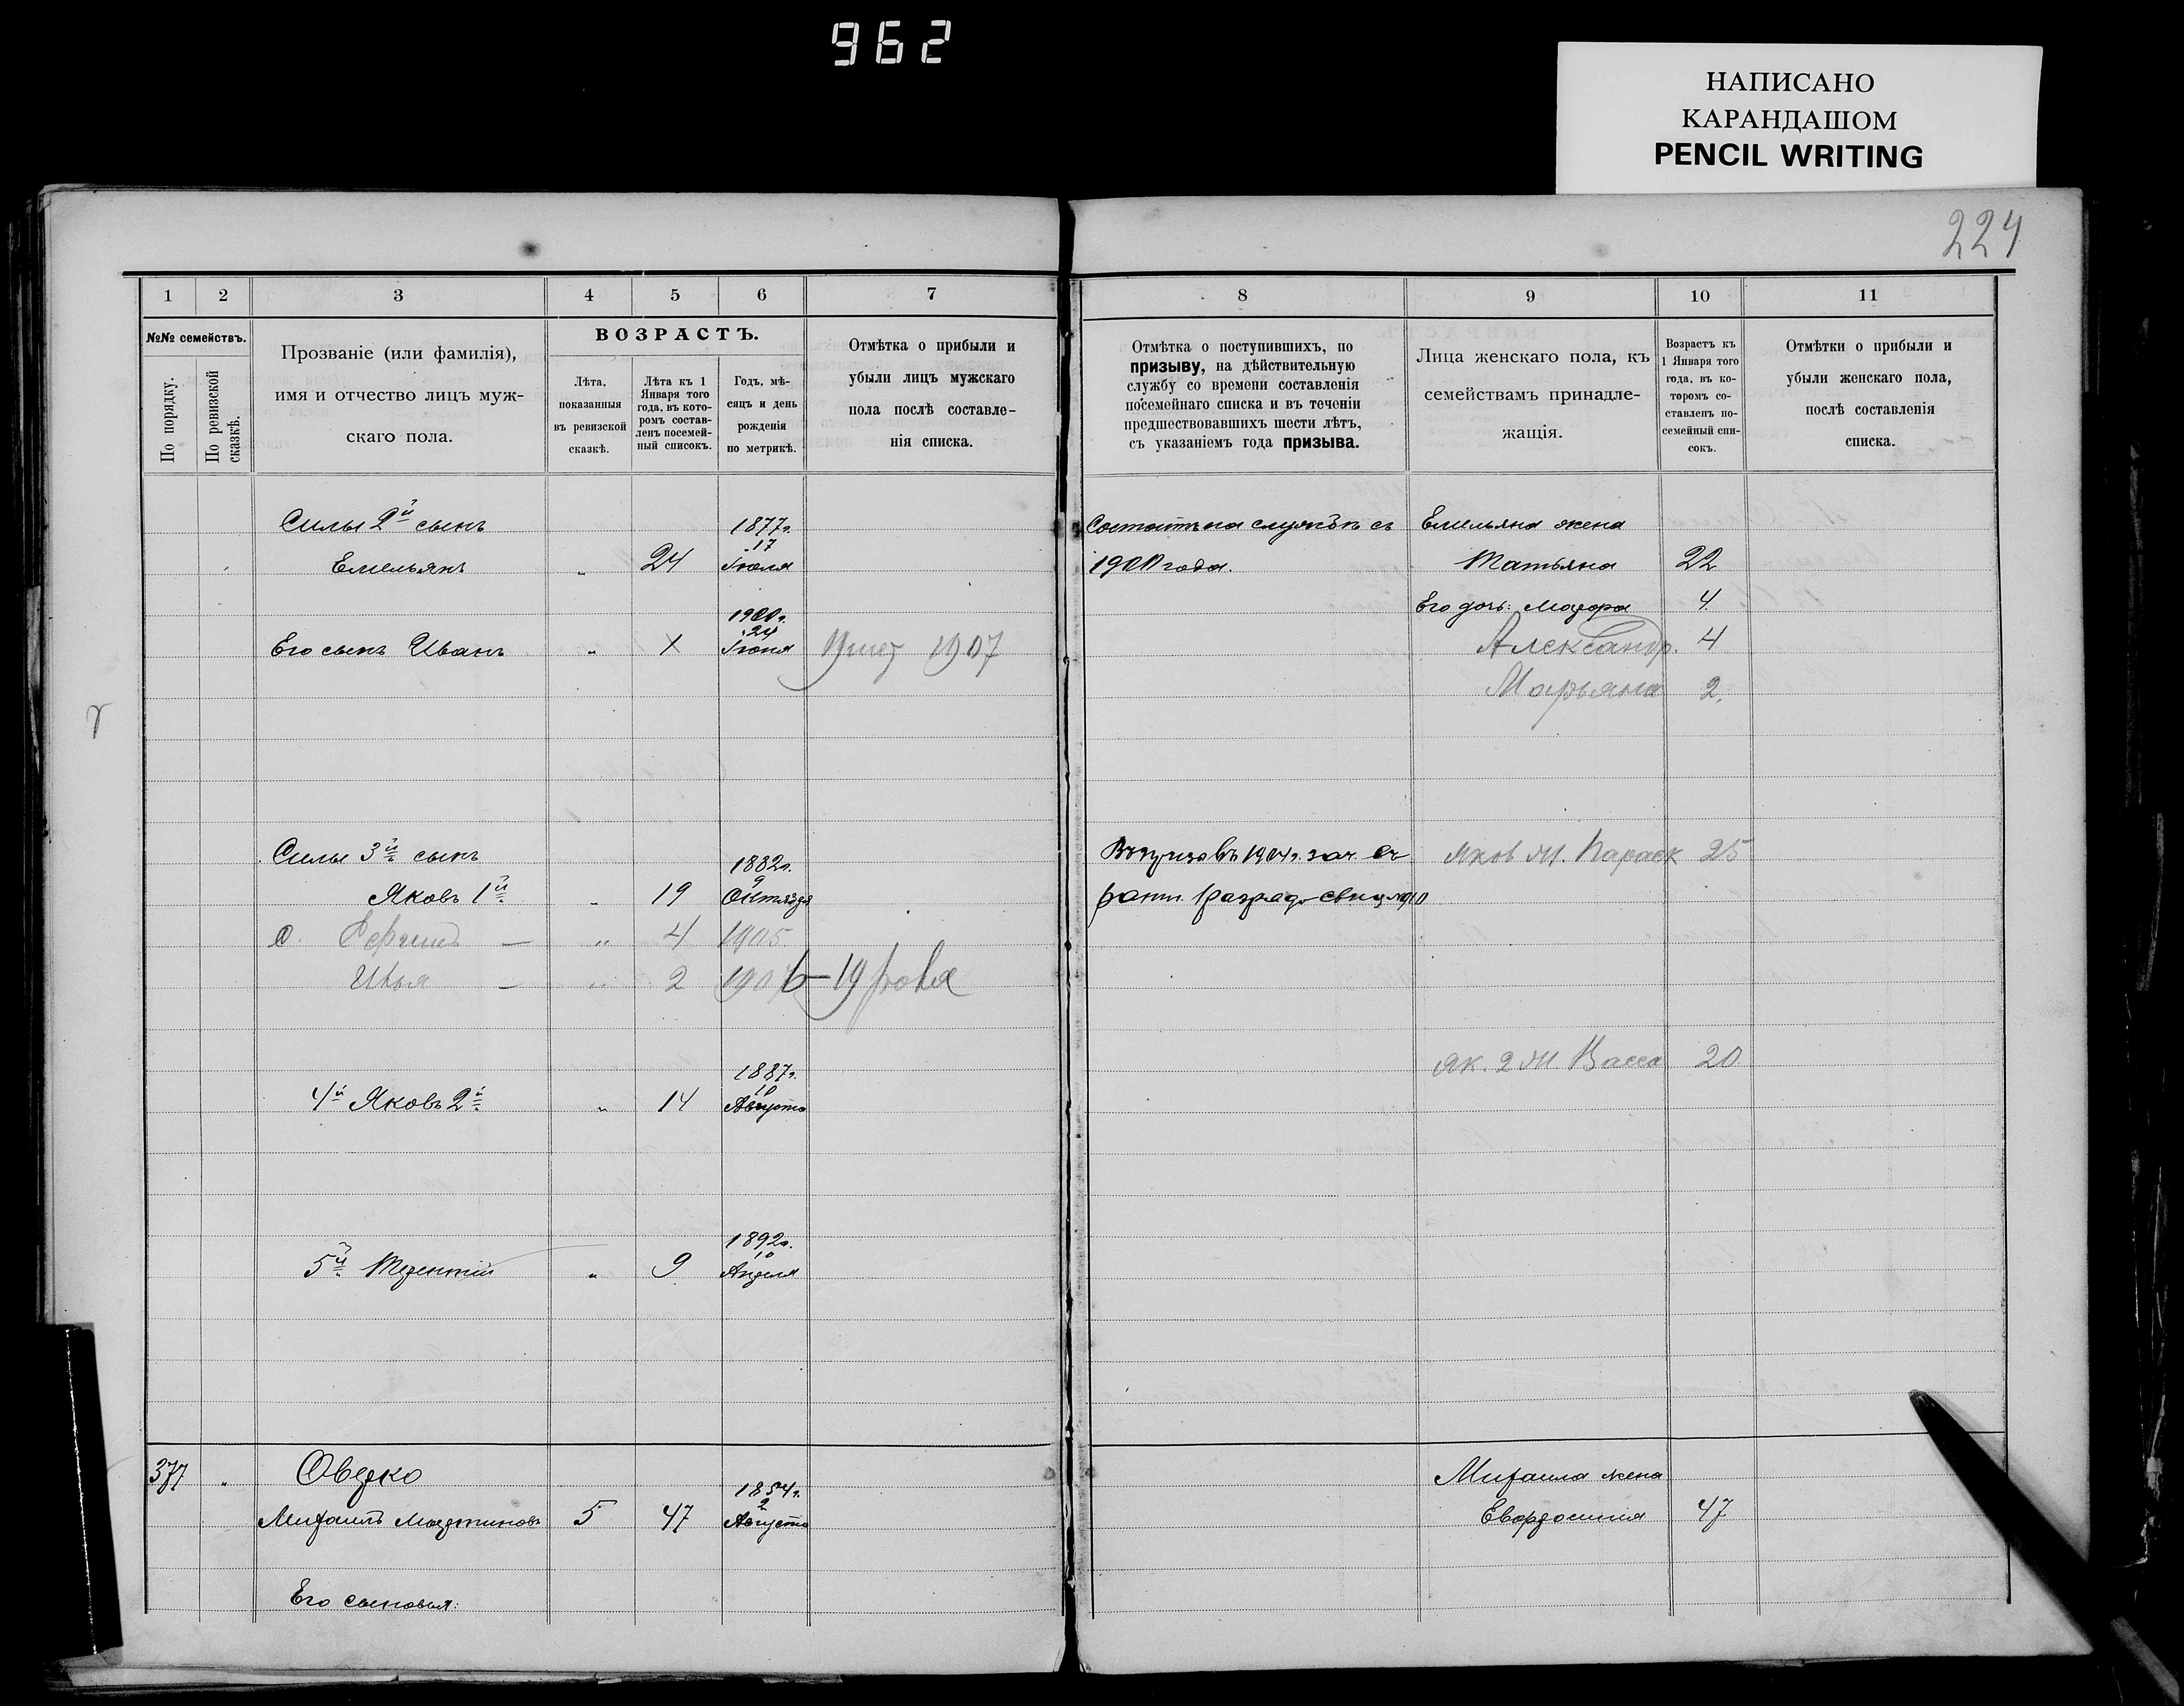 962
НАПИСАНО
КАРАНДАШОМ
PENCIL WRITING
224
1 2 3 4 5 6 7
№№ семействъ.
По порядку.
По ревизской сказкѣ.
Прозваніе (или фамилія),
имя и отчество лицъ муж-
скаго пола.
ВОЗРАСТЪ.
Лѣта,
показанныя
въ ревизской
сказкѣ.
Лѣта къ 1
Января того
года, въ кото-
ромъ состав-
ленъ посемей-
ный списокъ.
Годъ, мѣ-
сяцъ и день
рожденія
по метрикѣ.
Отмѣтка о прибыли и
убыли лицъ мужскаго
пола послѣ составле-
нія списка.
8 9 10 11
Отмѣтка о поступившихъ, по
призыву, на дѣйствительную
службу со времени составленія
посемейнаго списка и въ теченіи
предшествовавшихъ шести лѣтъ,
съ указаніемъ года призыва.
Лица женскаго пола, къ
семействамъ принадле-
жащія.
Возрастъ къ
1 Января того
года, въ ко-
торомъ со-
ставленъ по-
семейный спи-
сокъ.
Отмѣтки о прибыли и
убыли женскаго пола,
послѣ составленія
списка.
Силы 2й сынъ 1877г.
17
Емельянъ " 24 Іюля
1900г.
24
Его сынъ Иванъ " Іюня 1907
Силы 3й сынъ 1882г.
9
Яковъ 1й " 19 Октября
с. " 4 1905
Илья " 2 190
1887г.
10
4й Яковъ 2й " 14 Августа
1892г.
10
5й Терентій " 9 Апреля
377 " Оверко 1854г.
2
Михаилъ Мартиновъ 5 47 Августа
Его сыновья:
Состоитъ на службѣ съ Емельяна жена
1900 года. Татьяна 22
Его дочь: Мавра 4
Александр. 4
Марьяна 2.
въ 1904г. зач. въ Яков ж. Параск 25
ратн. 1 разряда
Як. 2 ж. Васса 20
Михаила жена
Евдокія 47